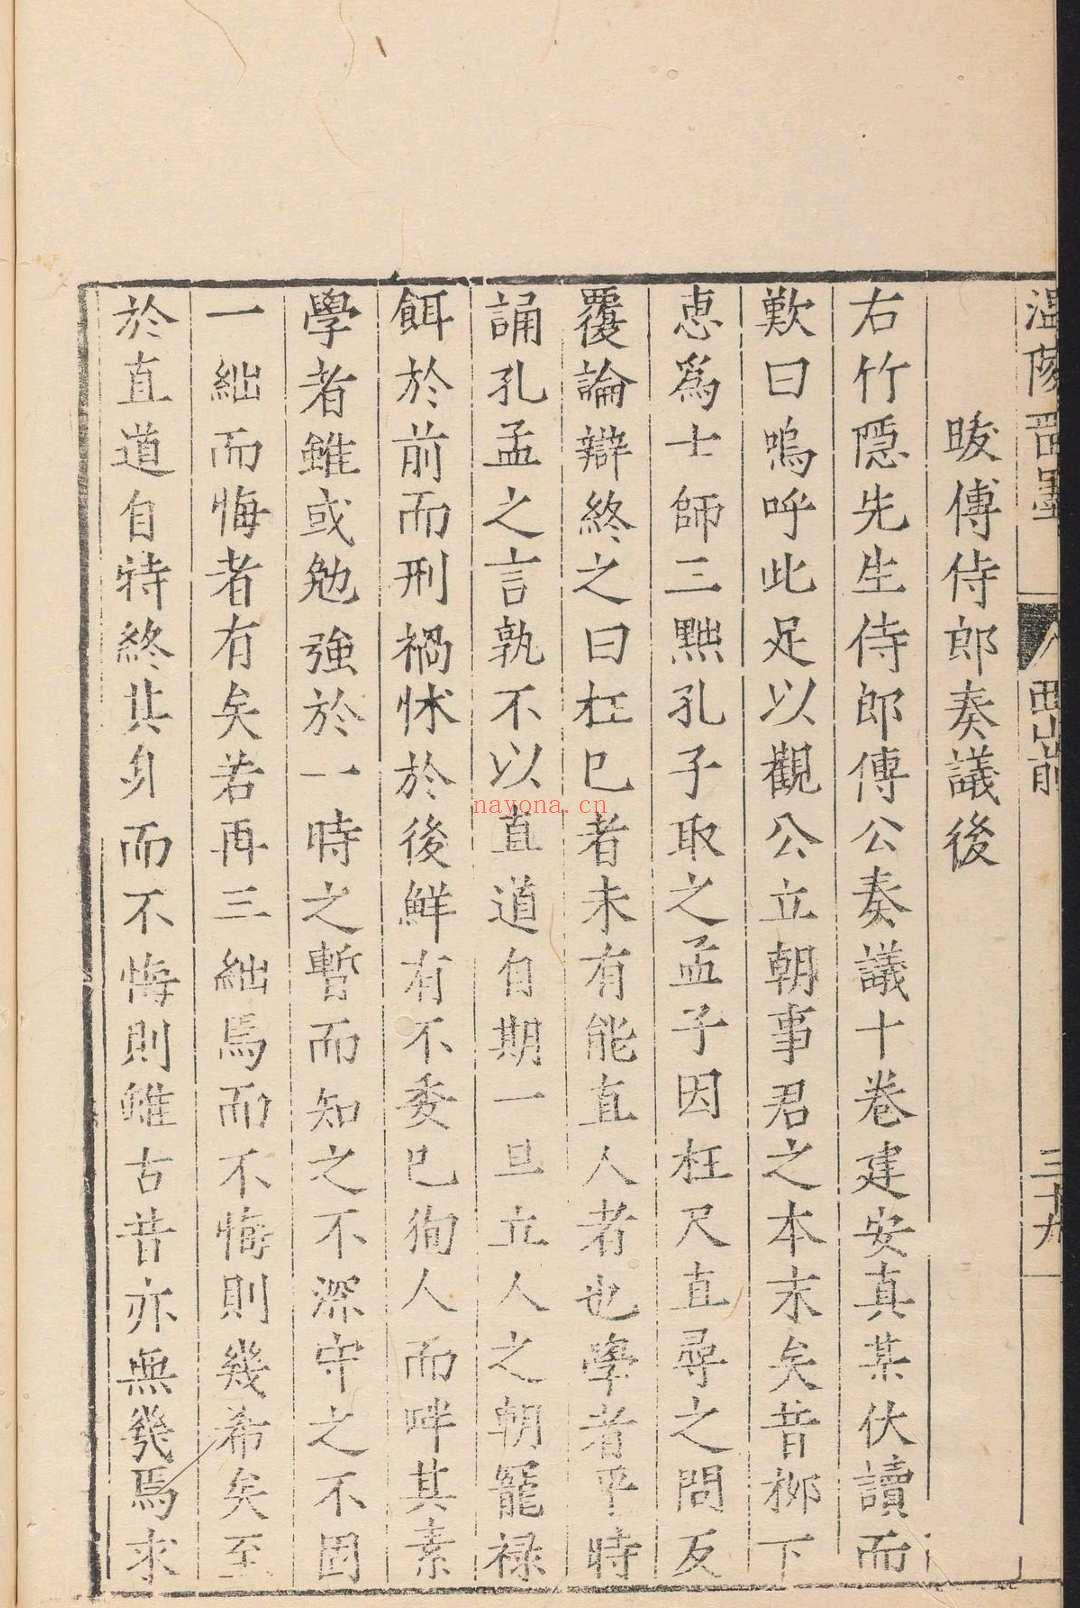 溫陵留墨 西山前 三十九
跋傅侍郎奏議後
右竹隱先生侍郎傅公奏議十卷建安真某伏讀而
歎曰嗚呼此足以觀公立朝事君之本末矣昔柳下
惠為士師三黜孔子取之孟子因枉尺直尋之問反
覆論辯終之曰枉己者未有能直人者也學者平時
誦孔孟之言孰不以直道自期一旦立人之朝寵祿
餌於前而刑禍怵於後鮮有不委已徇人而畔其素
學者雖或勉強於一時之暫而知之不深守之不固
一絀而悔者有矣若再三絀焉而不悔則幾希矣至
於直道自持終其身而不悔則雖古昔亦無幾焉求
nayona.cn